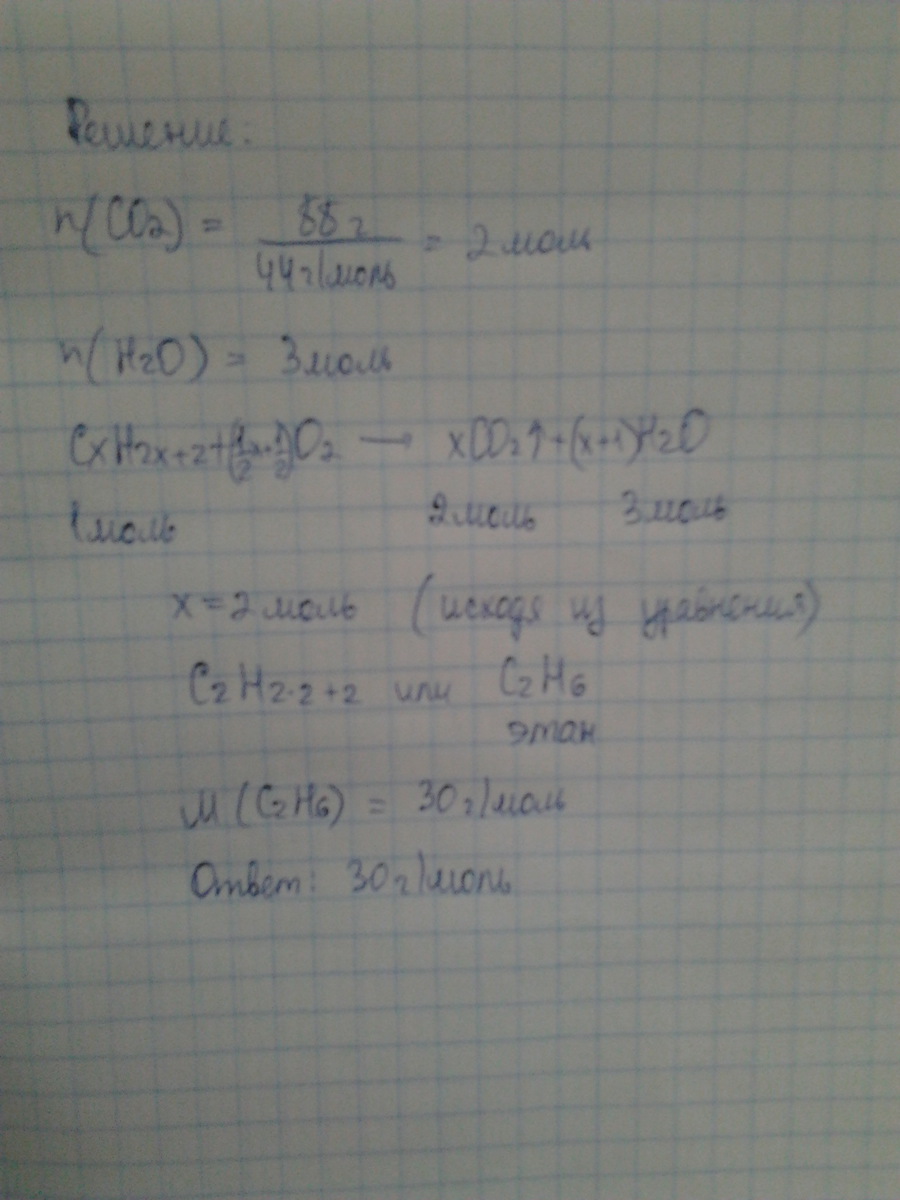 Решение:
n(CO2) = 88 г / 44 г/моль = 2 моль
n(H2O) = 3 моль
CxH2x+2 + ( x+ 1/2)O2 → xCO2↑ + (x+1)H2O
1 моль 2 моль 3 моль
x = 2 моль (исходя из уравнения)
C2H2·2+2 или C2H6
этан
M(C2H6) = 30 г/моль
Ответ: 30 г/моль